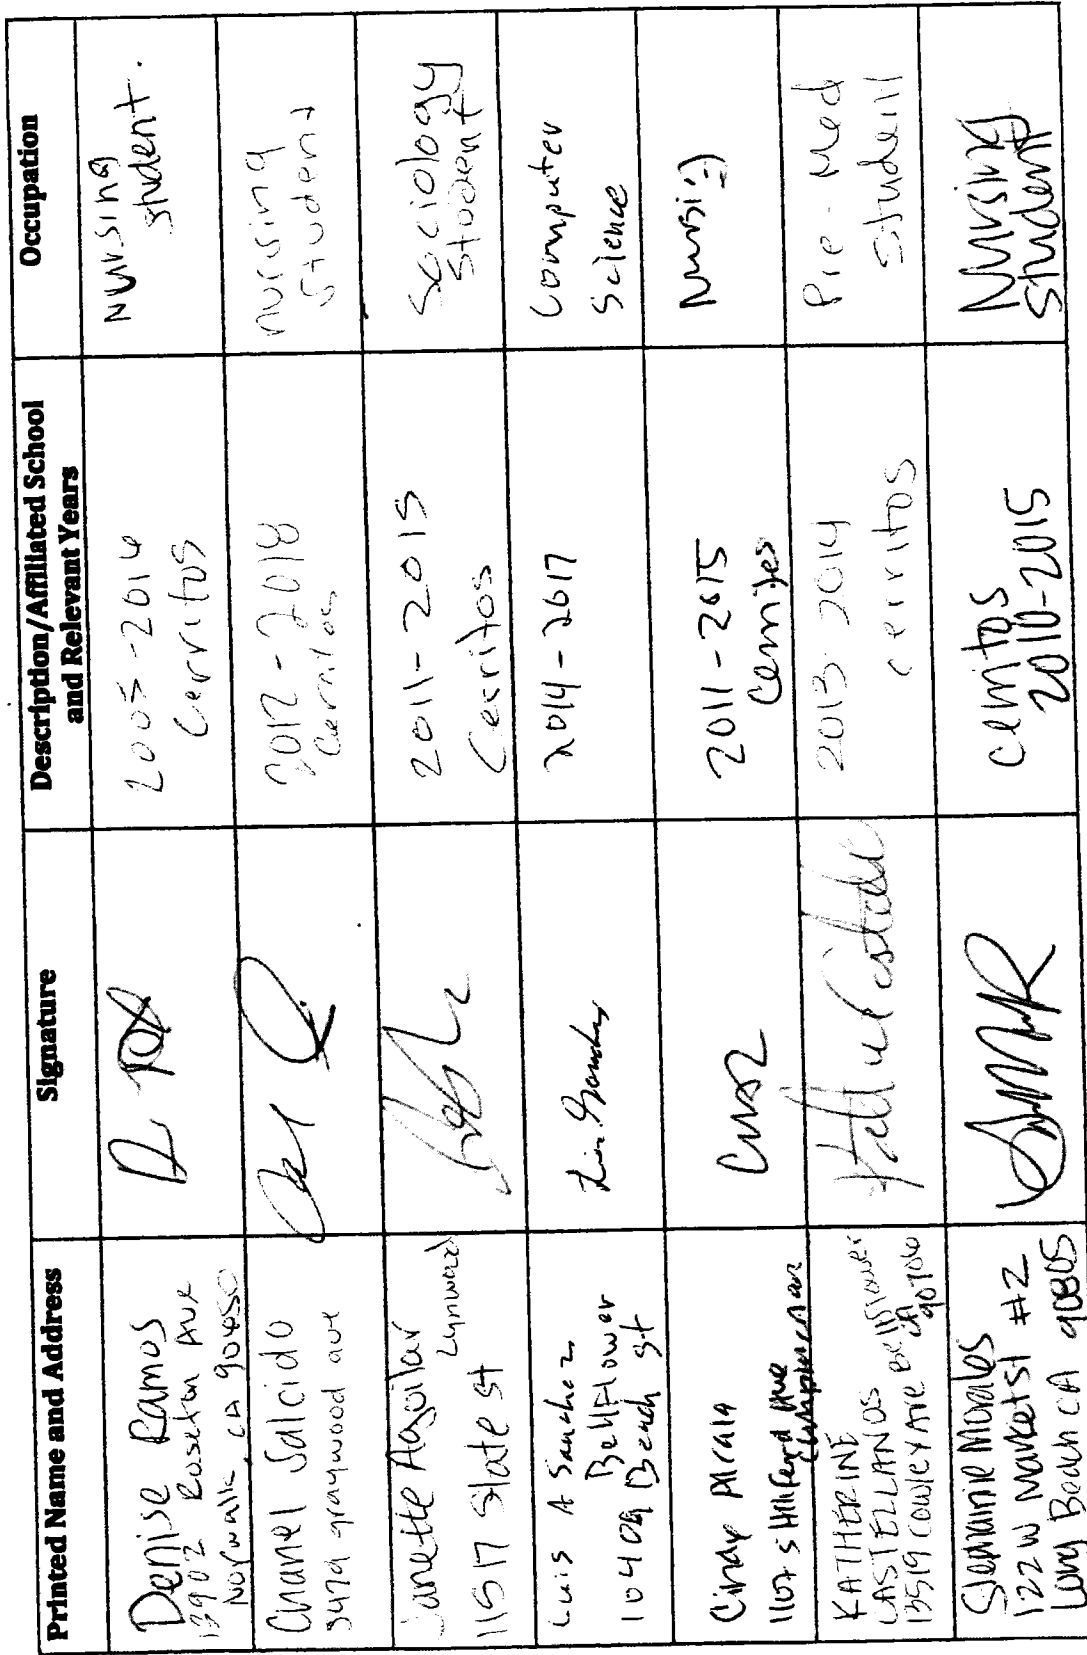 Printed Name and Address
Signature
Description/Affiliated School
and Relevant Years
Occupation
Denise Ramos
13902 Roseton Ave
Norwalk, CA 90650
2005-2016
Cerritos
Nursing
student.
Chanel Salcido
graywood ave
2012-2018
Cerritos
nursing
student
Janette Aguilar
Lynwood
11517 State St
2011-2015
Cerritos
Sociology
Student
Luis A Sanchez
Bellflower
10409 Beach St
2014-2017
Computer
Science
Cindy Alcala
1107 S
2011-2015
Cerritos
Nursing
KATHERINE
CASTELLANOS Bellflower
13519 COWLEY AVE CA
90706
2013-2014
cerritos
Pre-Med
Student
Stephanie Morales
122 W Market St #2
Long Beach CA 90805
cerritos
2010-2015
Nursing
Student